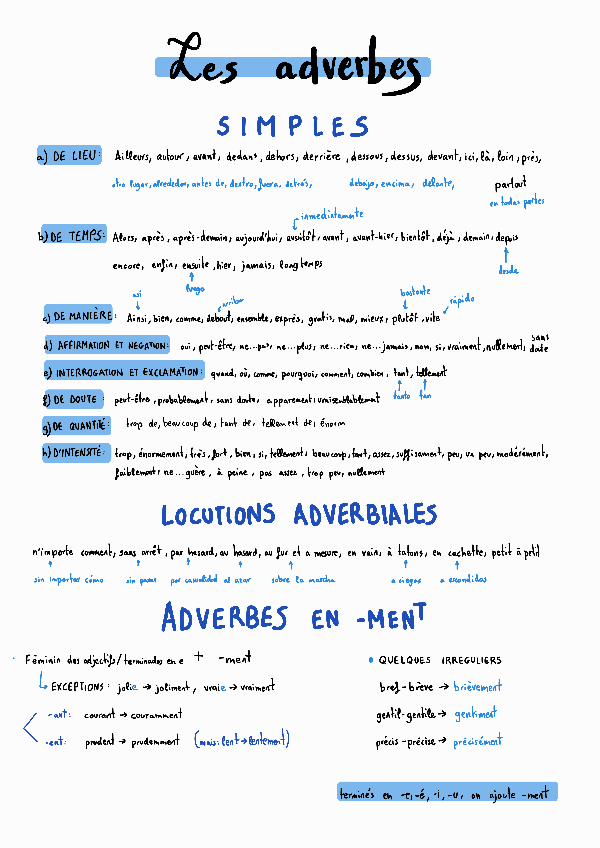 Les adverbes
SIMPLES
a) DE LIEU: Ailleurs, autour, avant, dedans, dehors, derrière, dessous, dessus, devant, ici, là, loin, près,
otro lugar, alrededor, antes de, dentro, fuera, detrás, debajo, encima, delante, partout
en todas partes
inmediatamente
b) DE TEMPS: Alors, après, après-demain, aujourd'hui, aussitôt, avant, avant-hier, bientôt, déjà, demain, depuis
encore, enfin, ensuite, hier, jamais, longtemps
desde
luego
así arriba bastante rápido
c) DE MANIÈRE: Ainsi, bien, comme, debout, ensemble, exprès, gratis, mal, mieux, plutôt, vite
d) AFFIRMATION ET NEGATION: oui, peut-être, ne...pas, ne...plus, ne...rien, ne...jamais, non, si, vraiment, nullement, sans doute
e) INTERROGATION ET EXCLAMATION: quand, où, comme, pourquoi, comment, combien, tant, tellement
tanto tan
f) DE DOUTE: peut-être, probablement, sans doute, apparement, vraisemblablement
g) DE QUANTITÉ: trop de, beaucoup de, tant de, tellement de, énorm
h) D'INTENSITÉ: trop, énormement, très, fort, bien, si, tellement, beaucoup, tant, assez, suffisament, peu, un peu, modérément,
faiblement, ne...guère, à peine, pas assez, trop peu, nullement
LOCUTIONS ADVERBIALES
n'importe comment, sans arrêt, par hasard, au hasard, au fur et a mesure, en vain, à tatons, en cachette, petit à petit
sin importar cómo sin parar por casualidad al azar sobre la marcha a ciegas a escondidas
ADVERBES EN -MENT
Féminin des adjectifs/terminados en e + -ment
EXCEPTIONS: jolie → joliment, vraie → vraiment
-ant: courant → couramment
-ent: prudent → prudemment (mais: lent → lentement)
QUELQUES IRREGULIERS
bref-brève → brièvement
gentil-gentile → gentiment
précis-précise → précisément
terminés en -e, -é, -i, -u, on ajoute -ment